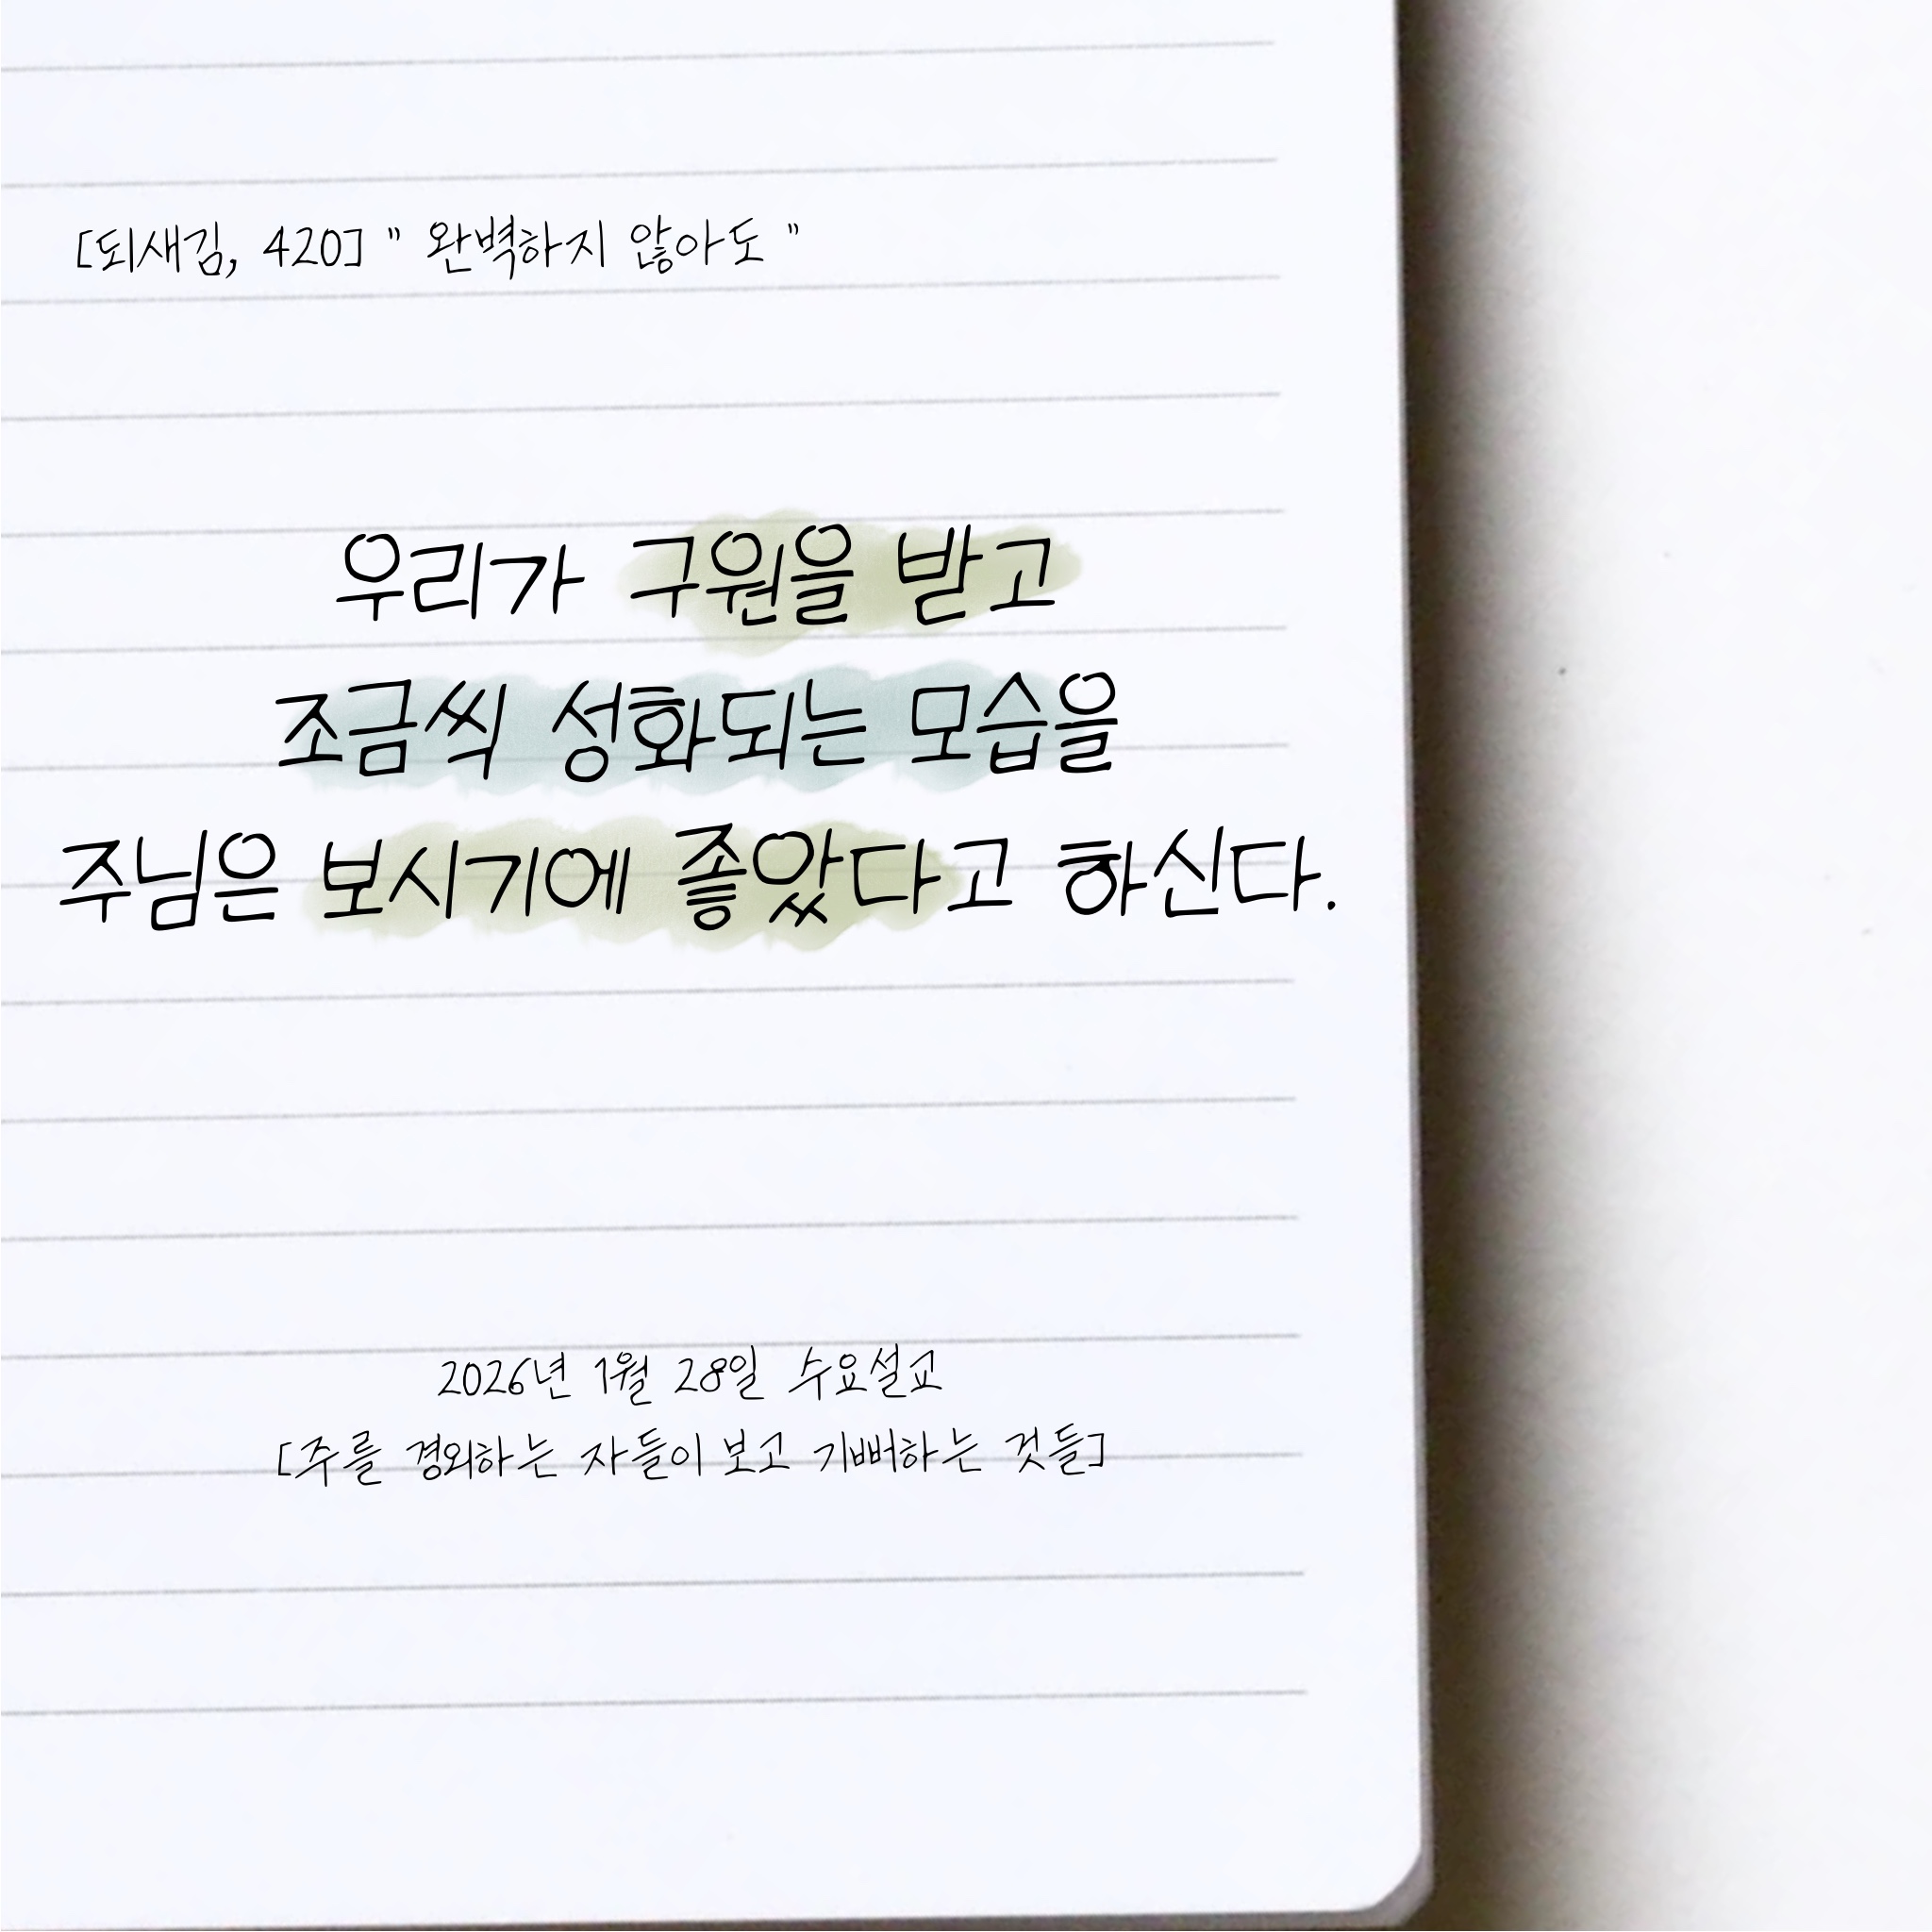 [되새김, 420] " 완벽하지 않아도 "
우리가 구원을 받고
조금씩 성화되는 모습을
주님은 보시기에 좋았다고 하신다.
2026년 1월 28일 수요설교
[주를 경외하는 자들이 보고 기뻐하는 것들]